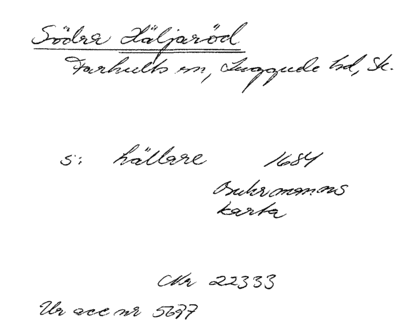 Södra Häljaröd
Farhults sn, Luggude hd, Sk.
s: hällare 1684
Buhrmanns
karta
Nr 22333
Ur acc nr 5697